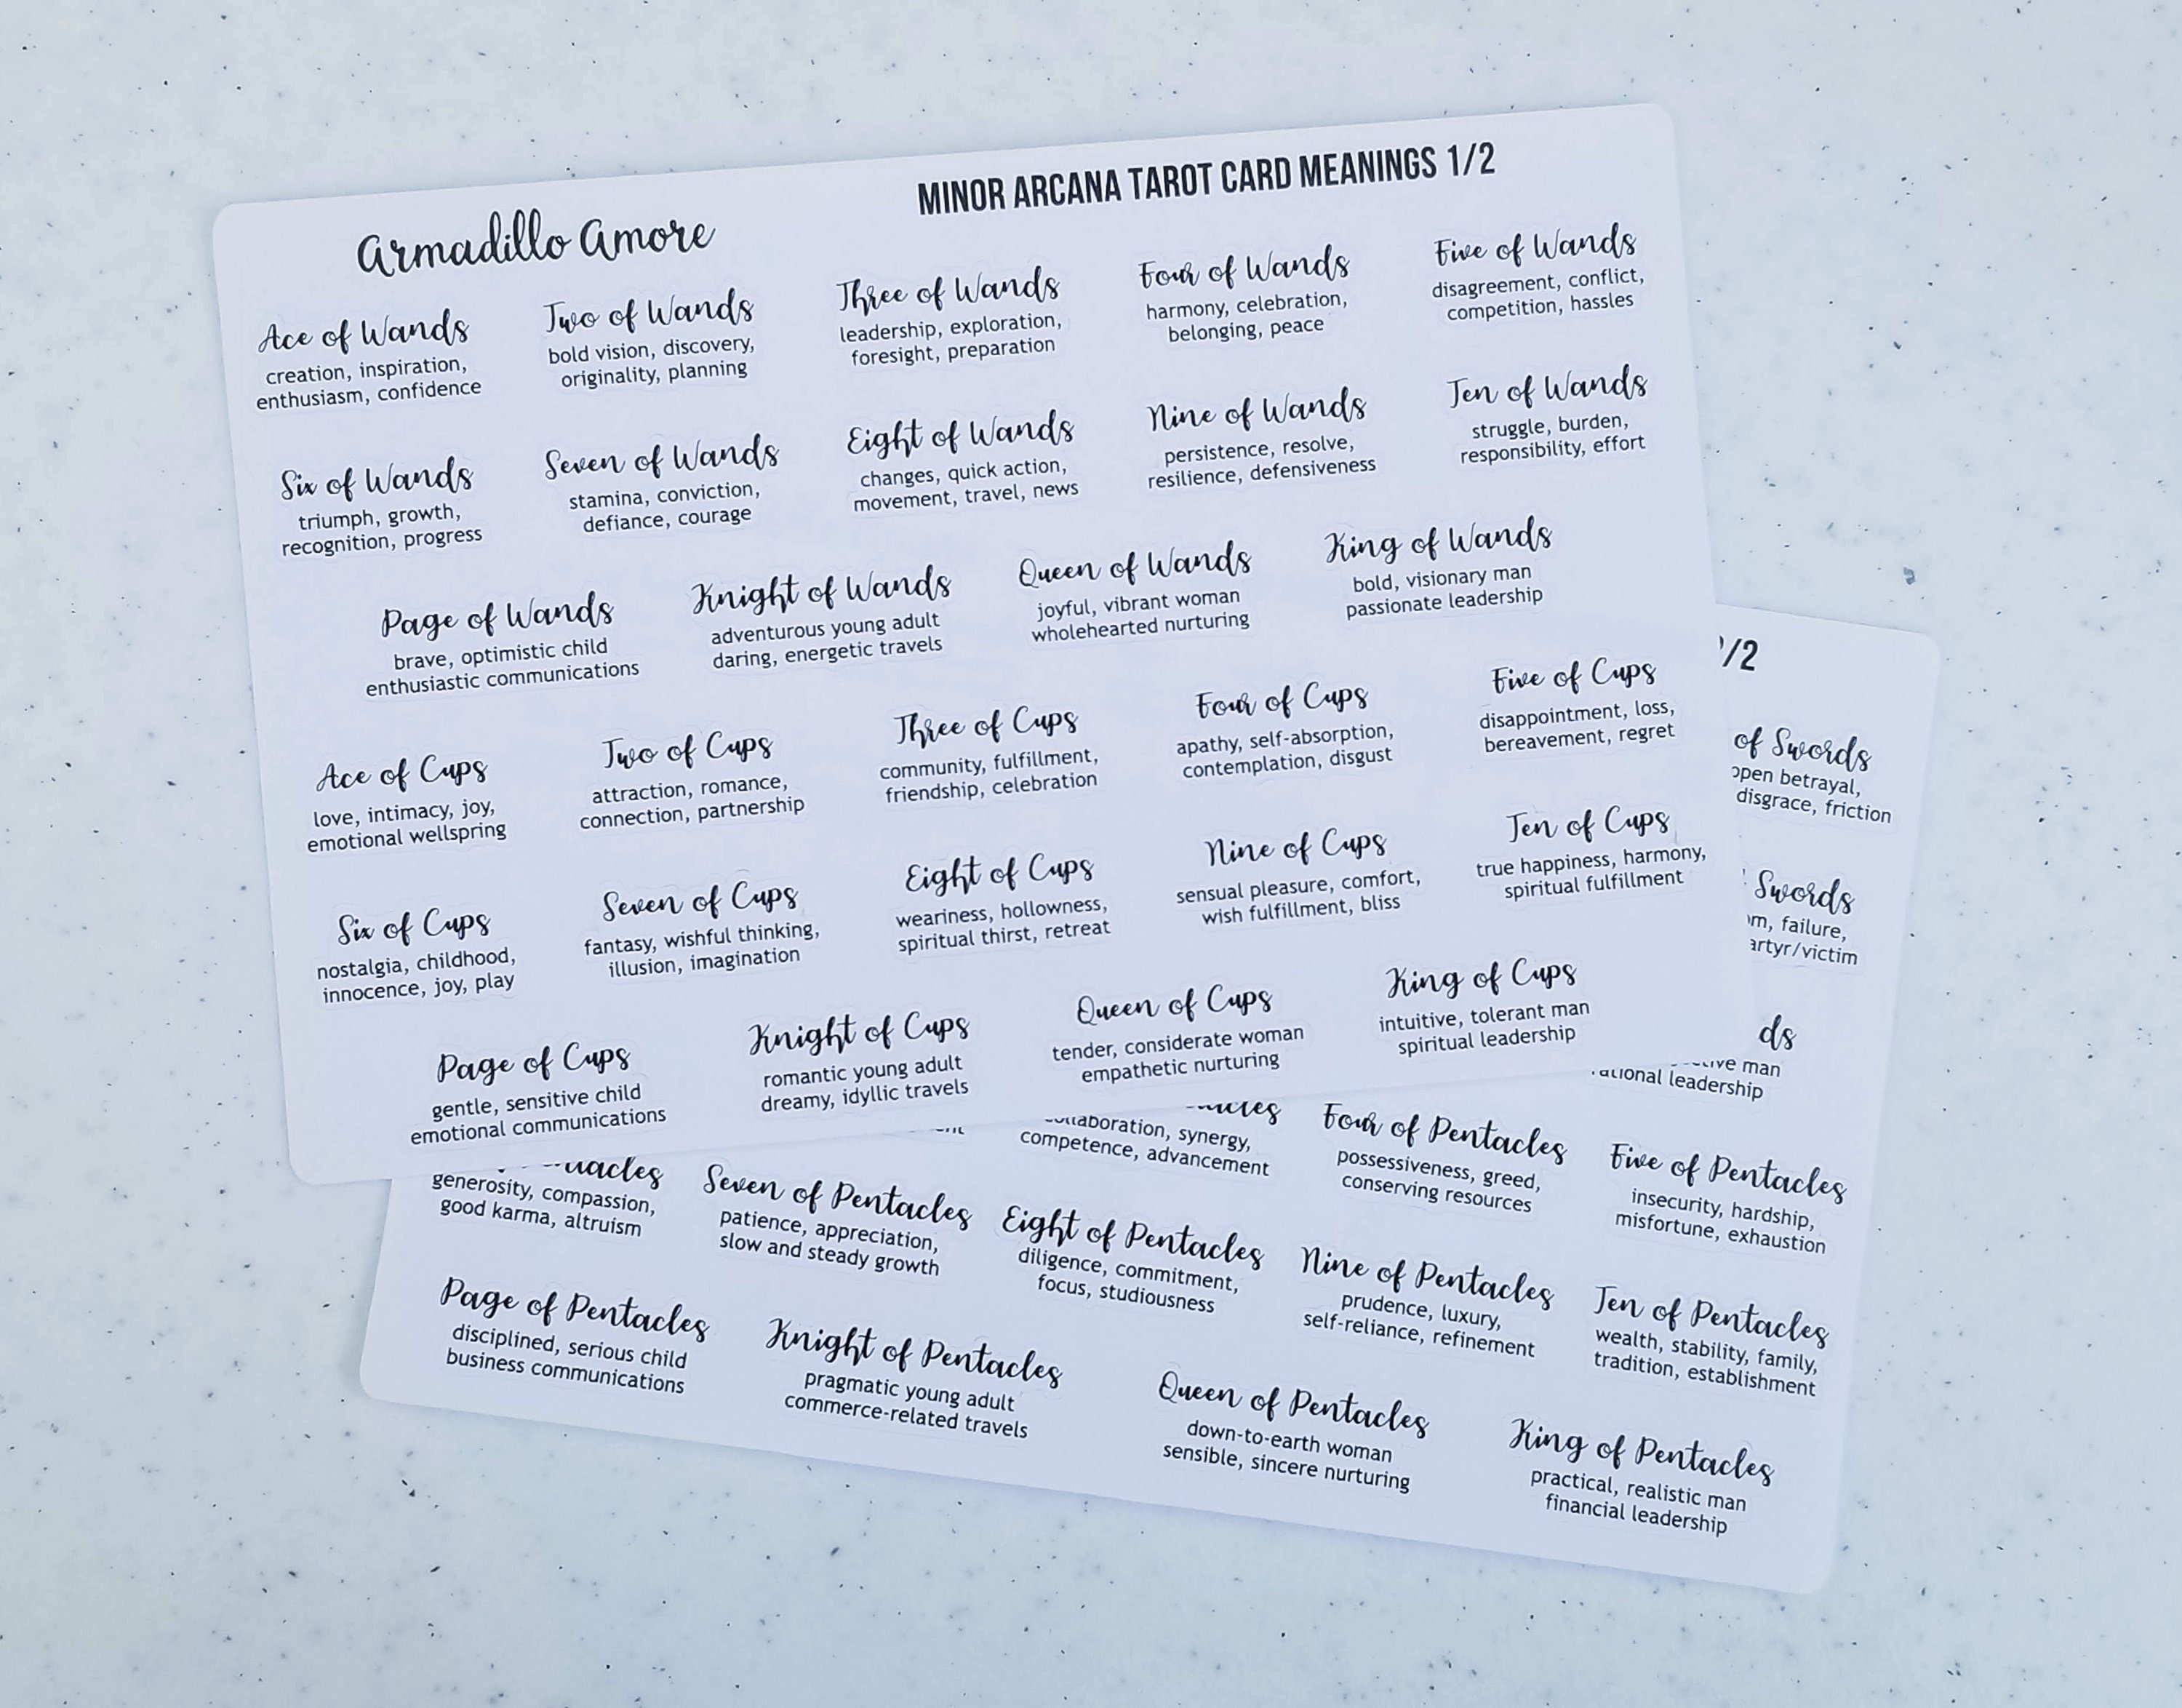 Armadillo Amore
MINOR ARCANA TAROT CARD MEANINGS 1/2
Ace of Wands
creation, inspiration,
enthusiasm, confidence
Two of Wands
bold vision, discovery,
originality, planning
Three of Wands
leadership, exploration,
foresight, preparation
Four of Wands
harmony, celebration,
belonging, peace
Five of Wands
disagreement, conflict,
competition, hassles
Six of Wands
triumph, growth,
recognition, progress
Seven of Wands
stamina, conviction,
defiance, courage
Eight of Wands
changes, quick action,
movement, travel, news
Nine of Wands
persistence, resolve,
resilience, defensiveness
Ten of Wands
struggle, burden,
responsibility, effort
Page of Wands
brave, optimistic child
enthusiastic communications
Knight of Wands
adventurous young adult
daring, energetic travels
Queen of Wands
joyful, vibrant woman
wholehearted nurturing
King of Wands
bold, visionary man
passionate leadership
Ace of Cups
love, intimacy, joy,
emotional wellspring
Two of Cups
attraction, romance,
connection, partnership
Three of Cups
community, fulfillment,
friendship, celebration
Four of Cups
apathy, self-absorption,
contemplation, disgust
Five of Cups
disappointment, loss,
bereavement, regret
Six of Cups
nostalgia, childhood,
innocence, joy, play
Seven of Cups
fantasy, wishful thinking,
illusion, imagination
Eight of Cups
weariness, hollowness,
spiritual thirst, retreat
Nine of Cups
sensual pleasure, comfort,
wish fulfillment, bliss
Ten of Cups
true happiness, harmony,
spiritual fulfillment
Page of Cups
gentle, sensitive child
emotional communications
Knight of Cups
romantic young adult
dreamy, idyllic travels
Queen of Cups
tender, considerate woman
empathetic nurturing
King of Cups
intuitive, tolerant man
spiritual leadership
/2
of Swords
open betrayal,
disgrace, friction
Swords
failure,
/victim
man
leadership
synergy,
competence, advancement
Four of Pentacles
possessiveness, greed,
conserving resources
Five of Pentacles
insecurity, hardship,
misfortune, exhaustion
generosity, compassion,
good karma, altruism
Seven of Pentacles
patience, appreciation,
slow and steady growth
Eight of Pentacles
diligence, commitment,
focus, studiousness
Nine of Pentacles
prudence, luxury,
self-reliance, refinement
Ten of Pentacles
wealth, stability, family,
tradition, establishment
Page of Pentacles
disciplined, serious child
business communications
Knight of Pentacles
pragmatic young adult
commerce-related travels
Queen of Pentacles
down-to-earth woman
sensible, sincere nurturing
King of Pentacles
practical, realistic man
financial leadership